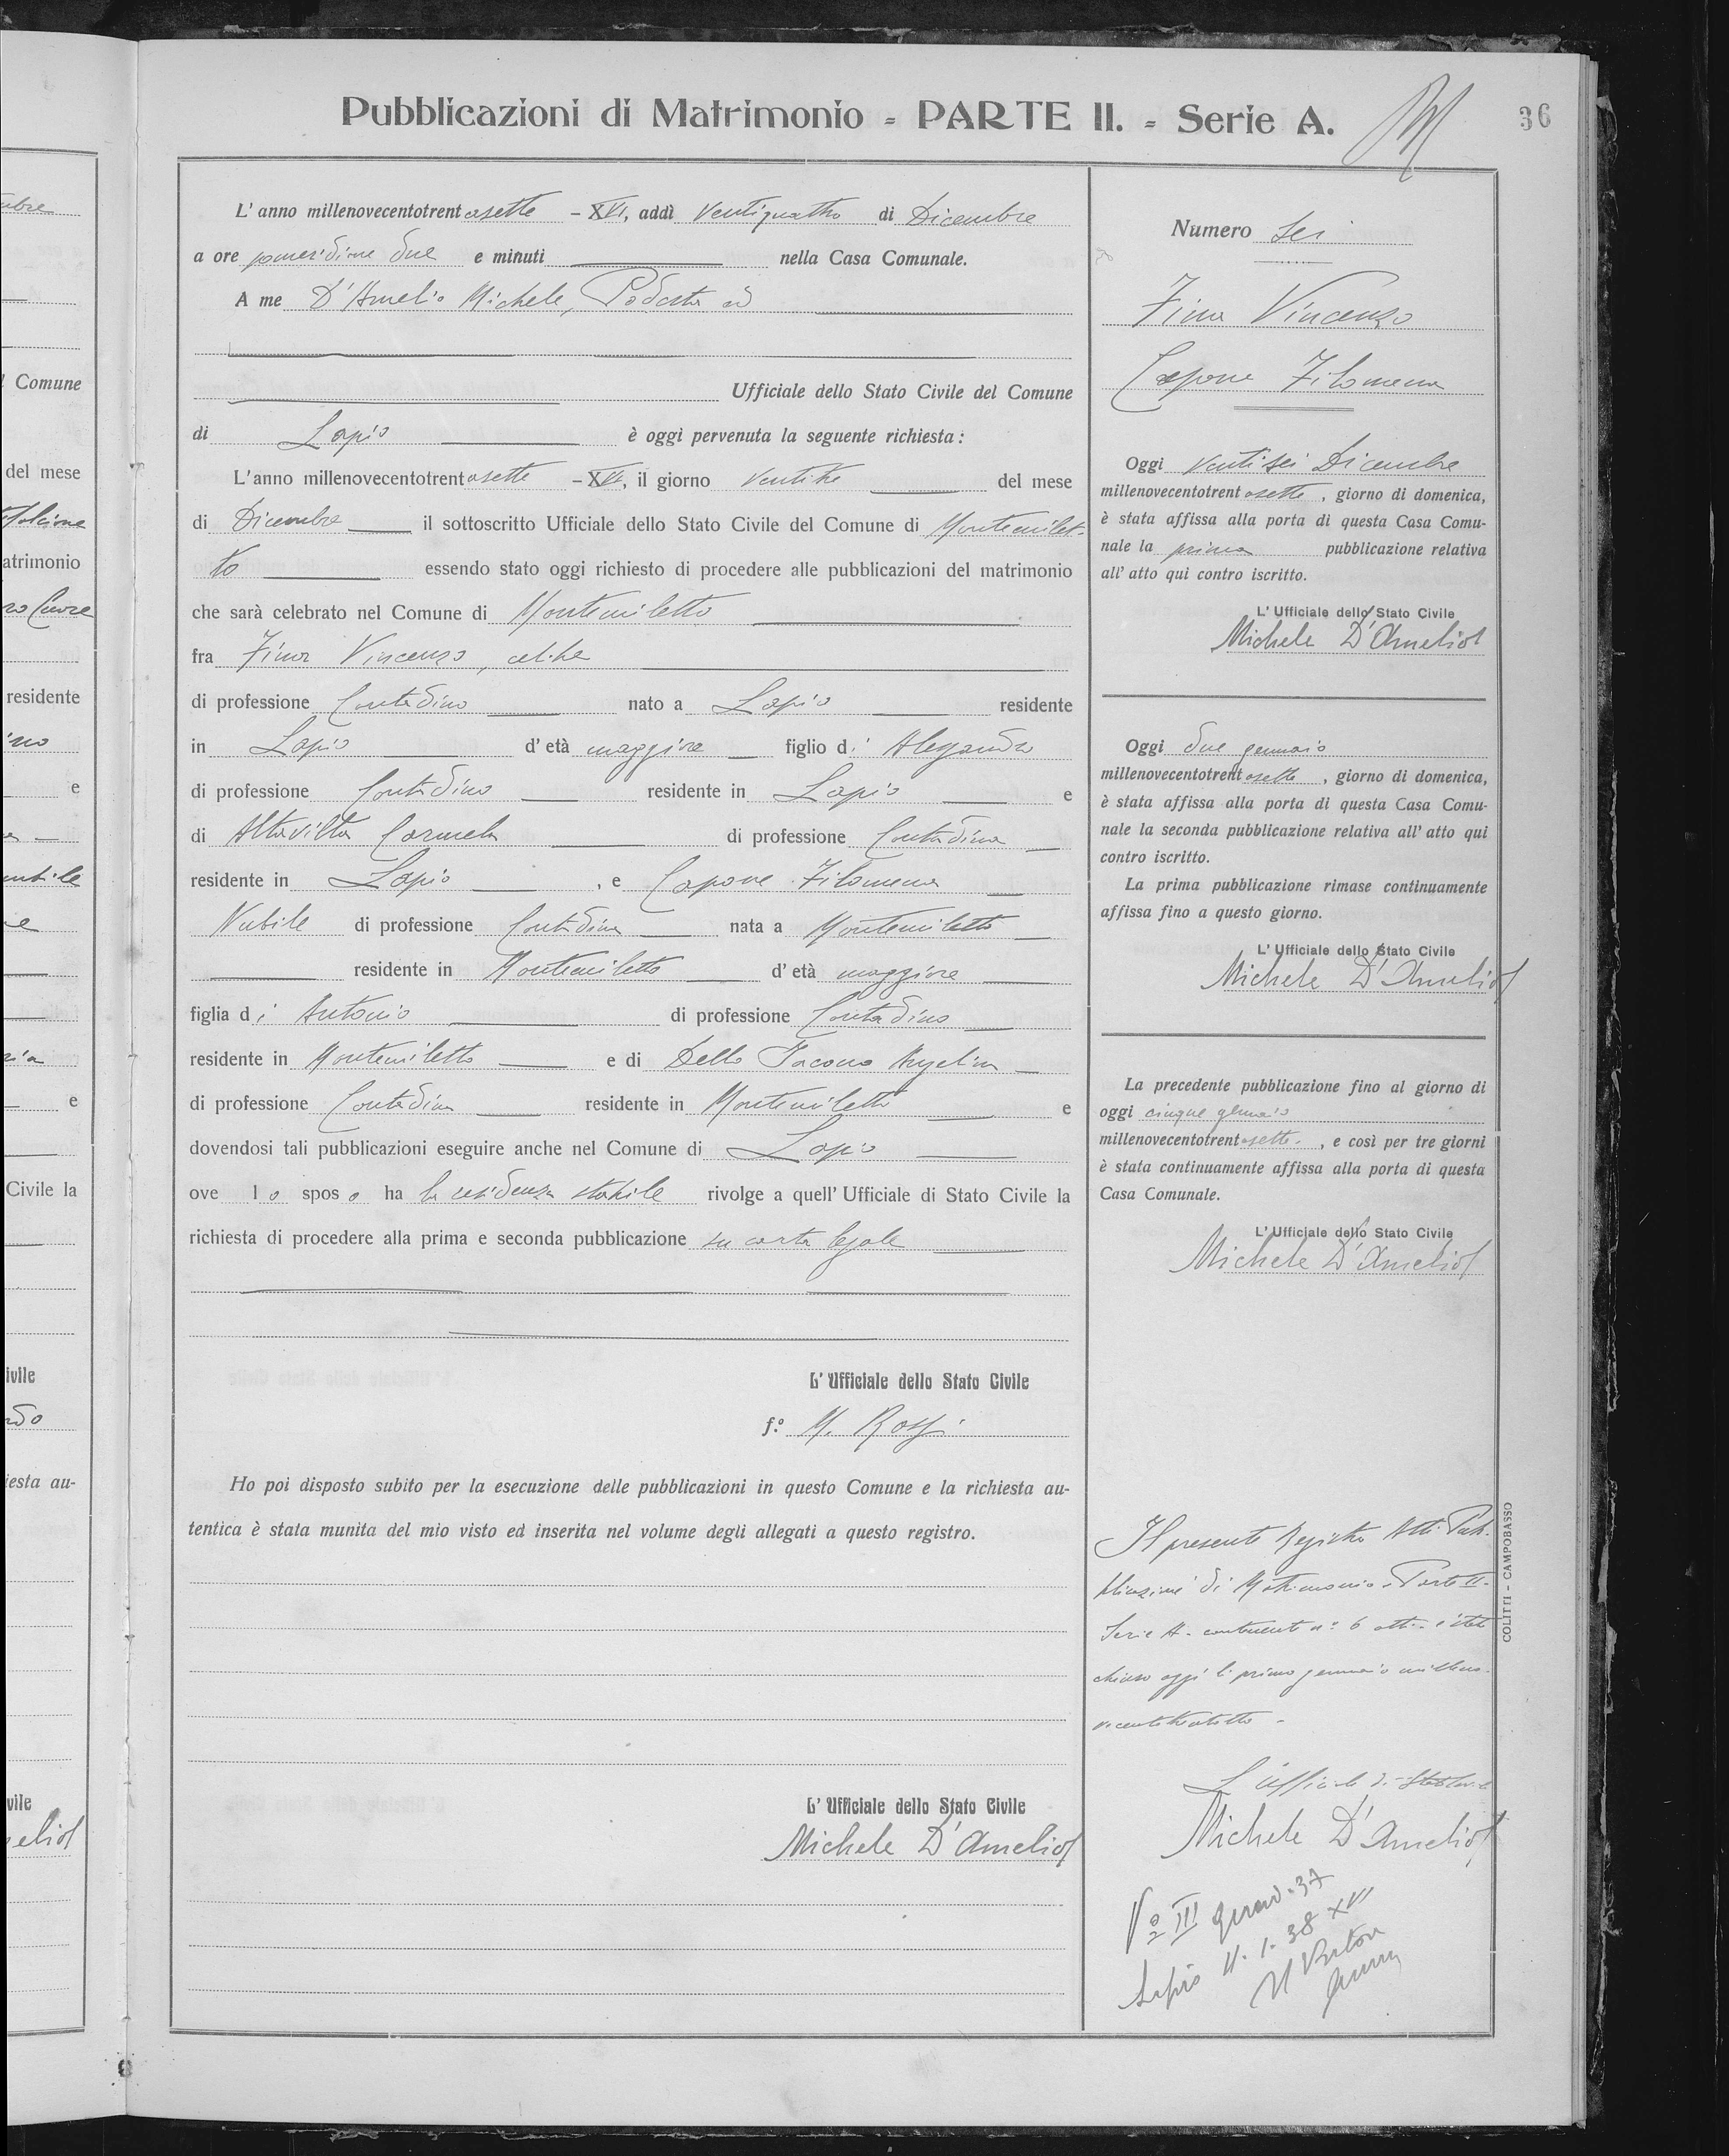 Pubblicazioni di Matrimonio - PARTE II. - Serie A.
36
L'anno millenovecentotrentasette - XVI, addì ventiquattro di Dicembre
a ore pomeridiane due e minuti nella Casa Comunale.
A me D'Amelio Michele, Podestà ed
Ufficiale dello Stato Civile del Comune
di Lapio è oggi pervenuta la seguente richiesta:
L'anno millenovecentotrentasette - XVI, il giorno ventitre del mese
di Dicembre il sottoscritto Ufficiale dello Stato Civile del Comune di Montemilet-
to essendo stato oggi richiesto di procedere alle pubblicazioni del matrimonio
che sarà celebrato nel Comune di Montemiletto
fra Fina Vincenzo, celibe
di professione Contadino nato a Lapio residente
in Lapio d'età maggiore figlio di Alessandro
di professione Contadino residente in Lapio e
di Altavilla Carmela di professione Contadina
residente in Lapio, e Capone Filomena
Nubile di professione Contadina nata a Montemiletto
residente in Montemiletto d'età maggiore
figlia di Antonio di professione Contadino
residente in Montemiletto e di Dello Iacono Angelina
di professione Contadina residente in Montemiletto e
dovendosi tali pubblicazioni eseguire anche nel Comune di Lapio
ove lo sposo ha la residenza stabile rivolge a quell'Ufficiale di Stato Civile la
richiesta di procedere alla prima e seconda pubblicazione su carta legale
L'Ufficiale dello Stato Civile
f.º M. Rossi
Ho poi disposto subito per la esecuzione delle pubblicazioni in questo Comune e la richiesta au-
tentica è stata munita del mio visto ed inserita nel volume degli allegati a questo registro.
L'Ufficiale dello Stato Civile
Michele D'Amelio
Numero Sei
Fina Vincenzo
Capone Filomena
Oggi ventisei Dicembre
millenovecentotrentasette, giorno di domenica,
è stata affissa alla porta di questa Casa Comu-
nale la prima pubblicazione relativa
all'atto qui contro iscritto.
L'Ufficiale dello Stato Civile
Michele D'Amelio
Oggi due gennaio
millenovecentotrentasette, giorno di domenica,
è stata affissa alla porta di questa Casa Comu-
nale la seconda pubblicazione relativa all'atto qui
contro iscritto.
La prima pubblicazione rimase continuamente
affissa fino a questo giorno.
L'Ufficiale dello Stato Civile
Michele D'Amelio
La precedente pubblicazione fino al giorno di
oggi cinque gennaio
millenovecentotrentasette, e così per tre giorni
è stata continuamente affissa alla porta di questa
Casa Comunale.
L'Ufficiale dello Stato Civile
Michele D'Amelio
Il presente Registro Atti Pub-
blicazioni di Matrimonio - Parte II -
Serie A - contenente n.º 6 atti è stato
chiuso oggi li primo gennaio milleno-
vecentotrentotto -
L'Ufficiale di Stato Civile
Michele D'Amelio
Vº III 37
Lapio 11. 1. 38 XVI
Il Pretore
COLITTI - CAMPOBASSO